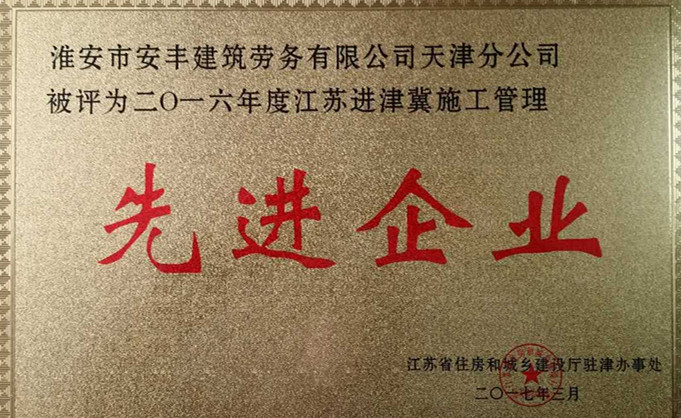 淮安市安丰建筑劳务有限公司天津分公司
被评为二〇一六年度江苏进津冀施工管理
先进企业
江苏省住房和城乡建设厅驻津办事处
二〇一七年三月